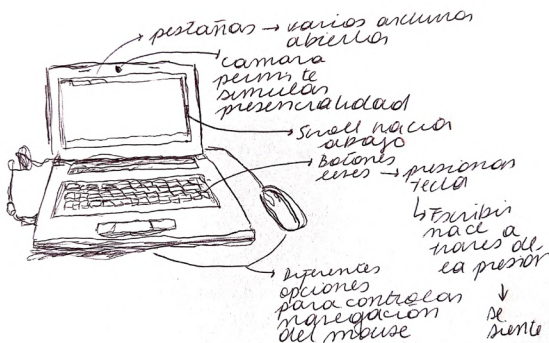 pestañas → varios archivos
abiertos
camara
permite
simular
presencialidad
Scroll hacia
abajo
Botones
→ presionar
tecla
↳ Escribir
nace a
traves de
la presión
↓
se
siente
Diferentes
opciones
para controlar
navegación
del mouse